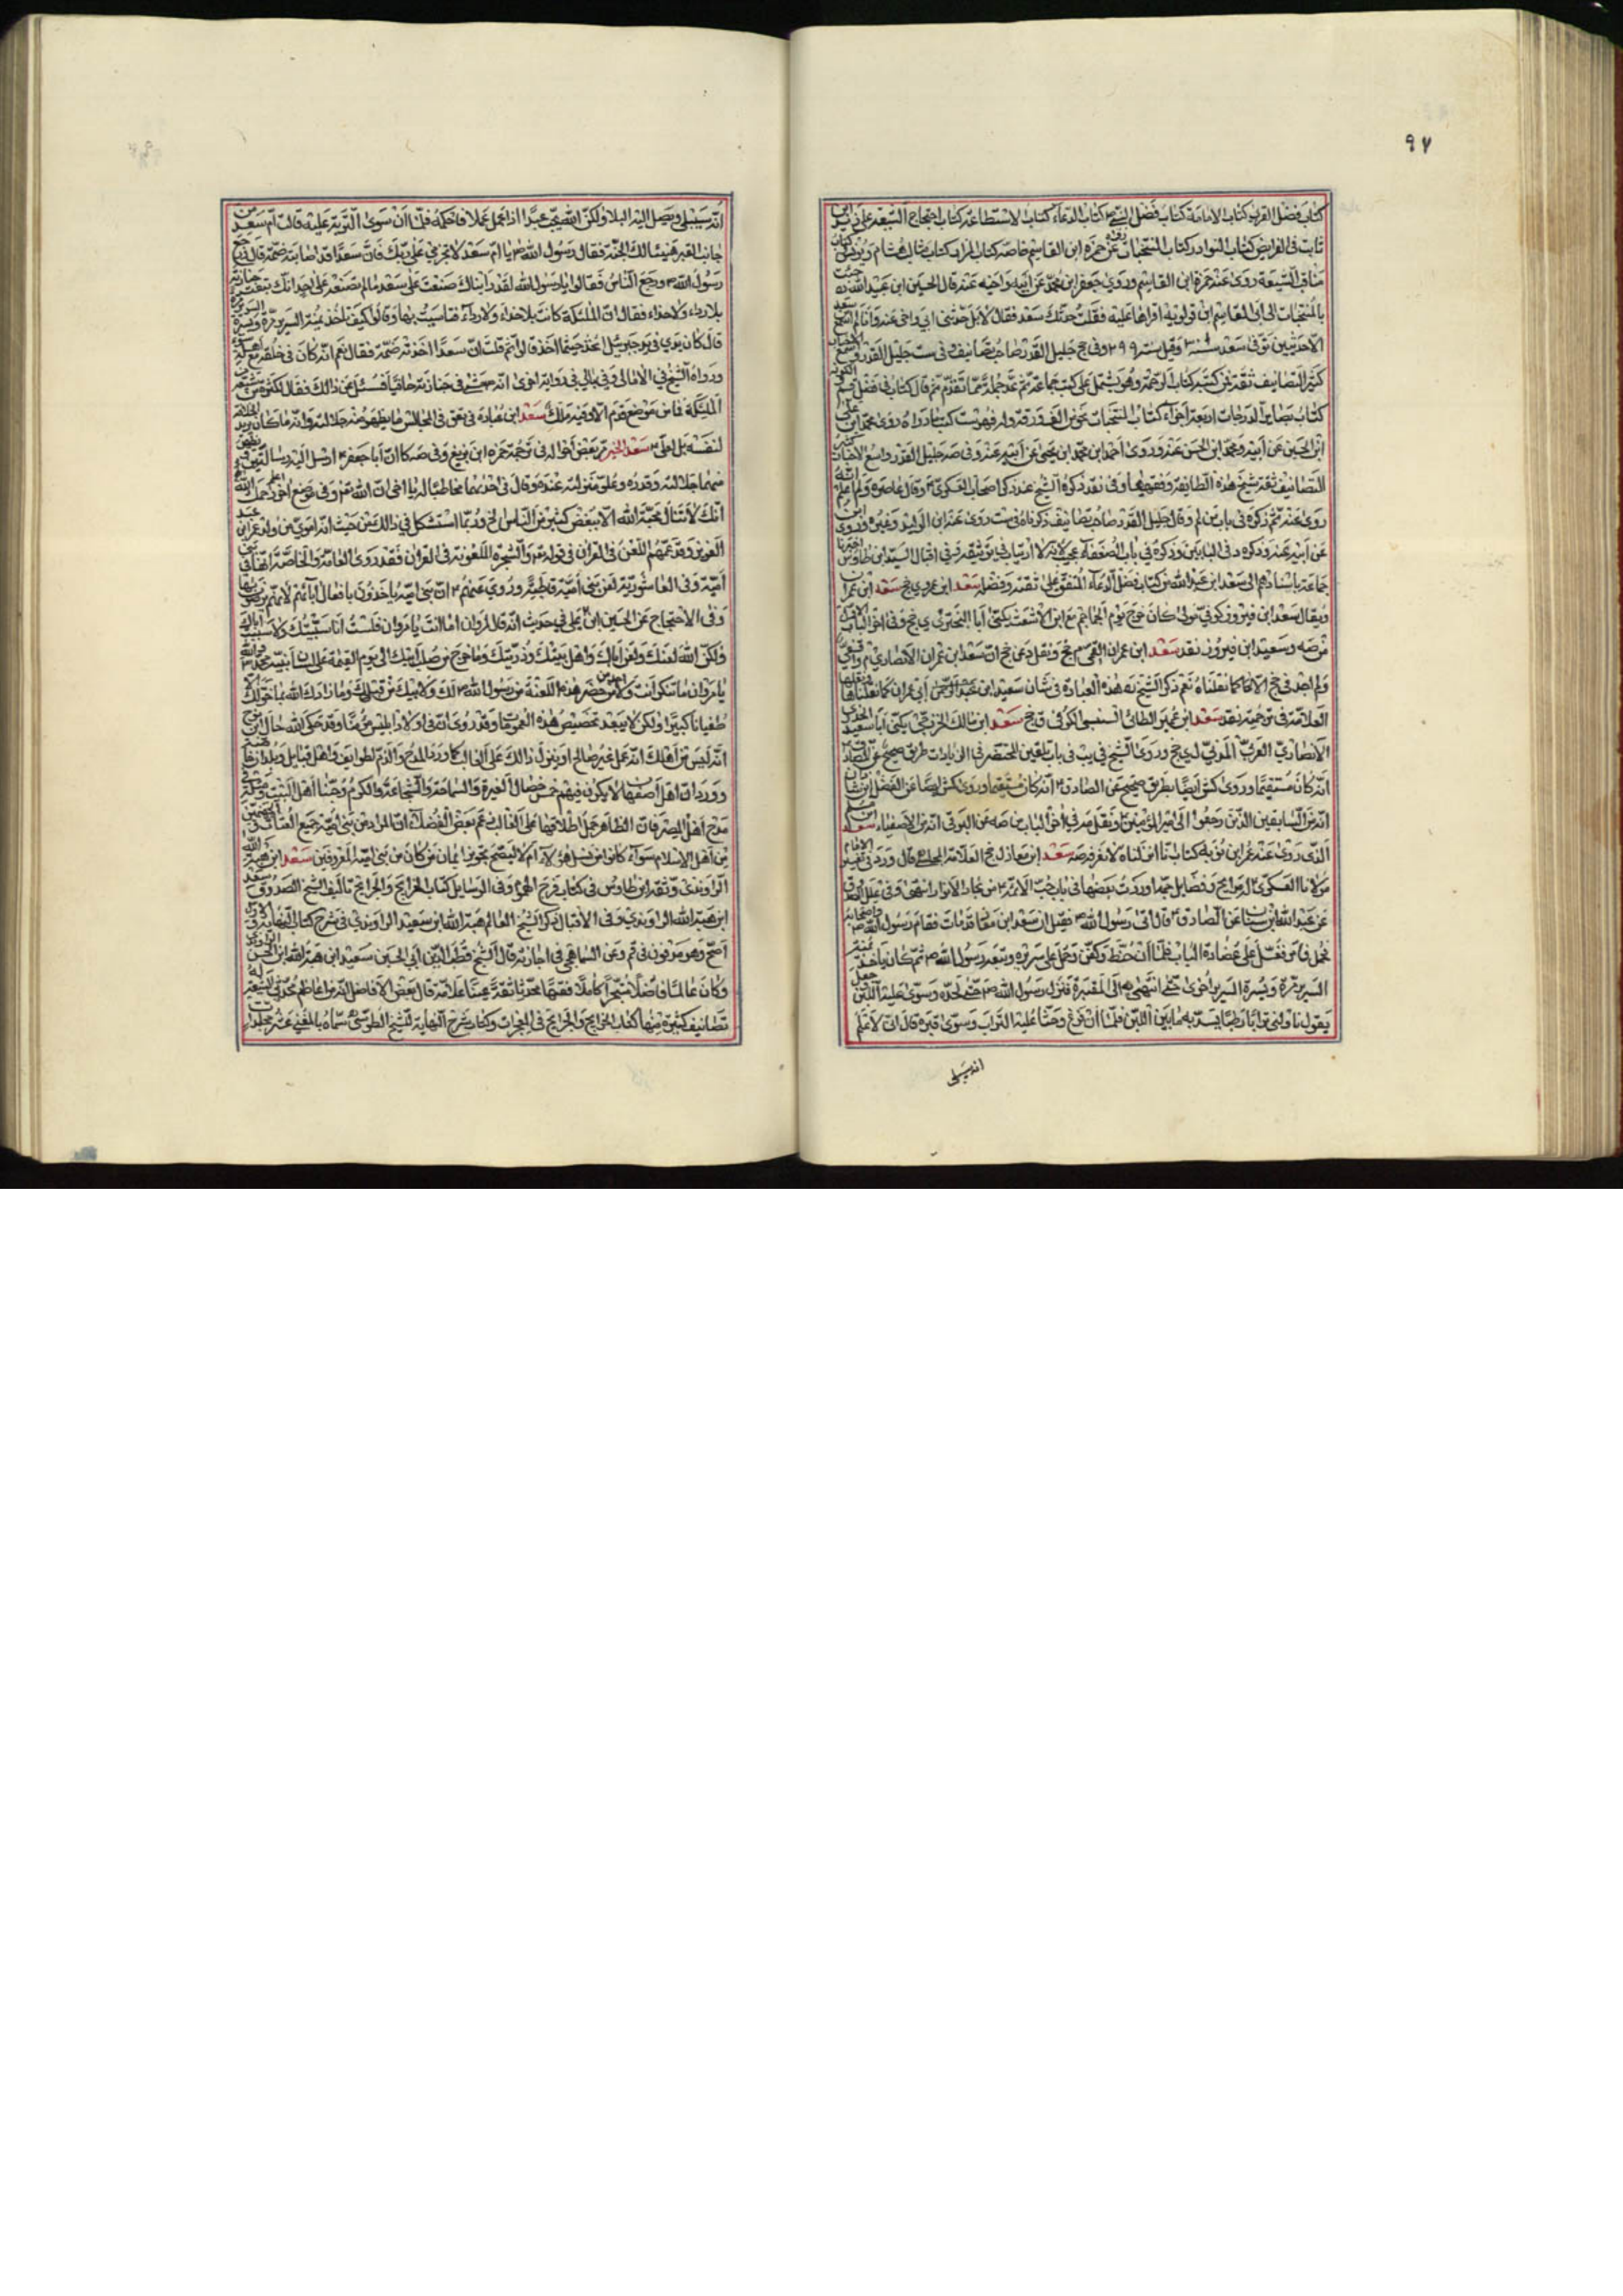 ٩٧
كتاب فضل القرآن كتاب الامامة كتاب فضل النبي كتاب الدعاء كتاب الاستطاعة كتاب احتجاج الشيعة على زيد ابن
ثابت في الفرايض كتاب النوادر كتاب المنتخبات عن حمزة ابن القاسم خاصة كتاب المزار كتاب مثالب هشام ويونس
مناقب الشيعة روى عنه حمزة ابن القاسم وروى جعفر ابن محمد عن ابيه واخيه عنه قال الحسين ابن عبيد الله
بالمنتخبات الى ابي القاسم ابن قولويه اقراها عليه فقلت حدثك سعد فقال لا بل حدثني ابي واخي عنه وانا لم اسمع
الا حديثين توفي سعد سنة وقيل سنة ٢٩٩ وفي جخ جليل القدر صاحب تصانيف وفي ست جليل القدر واسع
كثير التصانيف ثقة فمن كتبه كتاب الرحمة وهو يشتمل على كتب جماعة ثم عد جملة مما تقدم ثم قال كتاب في فضل قم
كتاب بصاير الدرجات اربعة اجزاء كتاب المنتخبات نحو من الف ورقة وله فهرست كتب ما رواه روى محمد ابن
ابن الحسين عن ابيه ومحمد ابن الحسن عنه وروى احمد ابن محمد ابن يحيى عن ابيه عنه وفي صه جليل القدر واسع الاخبار
التصانيف ثقة شيخ هذه الطائفة وفقيهها وفي نقد ذكره الشيخ عند ذكر اصحاب العسكري وقال عاصره ولم اعلم
روى عنه ثم ذكره في باب من لم وقال جليل القدر صاحب تصانيف ذكرناه في ست روى عنه ابن الوليد وغيره وروى
عن ابيه عنه وذكره د في البابين وذكره في باب الضعفاء عجيب لانه لا ارتياب في توثيقه في اقبال السيد ابن طاوس
جماعة باسنادهم الى سعد ابن عبد الله من كتاب فضل الدعاء المتفق على ثقته وفضله سعد ابن عمر ي جخ سعد ابن عمران
ويقال سعد ابن فيروز كوفي مولى كان خرج يوم الجماجم مع ابن الاشعث يكنى ابا البختري ي جخ وفي اخر الباب
من صه وسعيد ابن فيروز نقد سعد ابن عمران القمي م جخ ونقل د عن جخ ان سعد ابن عمران الانصاري م واقفي
ولم اجد في جخ الا كما نقلناه نعم ذكر الشيخ ره هذه العبارة في شان سعيد ابن ابي عمران كما نقلناها
العلامة في ترجمته نقد سعد ابن عمير الطائي السنبسي الكوفي ق جخ سعد ابن مالك الخزرجي يكنى ابا سعيد الخدري
الانصاري العربي المدني ل ي جخ وروى الشيخ في يب في باب تلقين المحتضر في الزيادات بطريق صحيح عن الصادق
انه كان مستقيما وروى كش ايضا بطريق صحيح عن الصادق انه كان مستقيما وروى كش ايضا عن الفضل ابن شاذان
انه من السابقين الذين رجعوا الى امير المؤمنين ونقل صه في اخر الباب عن البرقي انه من الاصفياء سعد ابن
الذي روى عنه عمر ابن نويه كتابنا نقلناه لا نعرفه صه سعد ابن معاذ ل جخ العلامة المجلسي قال ورد في تفسير الامام
مولانا العسكري له مدايح وفضايل جمة اوردت بعضها في باب حب الائمة من بحار الانوار انتهى وفي علل الصدوق
عن عبد الله ابن سنان عن الصادق قال اتي رسول الله فقيل ان سعد ابن معاذ قد مات فقام رسول الله
فحمل فامر فغسل على عضادة الباب فلما ان حنط وكفن وحمل على سريره وتبعه رسول الله ثم كان ياخذ
السرير مرة ويسرة السرير اخرى حتى انتهى به الى المقبرة فنزل رسول الله حتى لحده وسوى عليه اللبن وجعل
يقول ناولني ترابا رطبا يسد به ما بين اللبن فلما ان فرغ وحثا عليه التراب وسوى قبره قال اني لاعلم
انه سيبلى
انه سيبلى ويصل اليه البلا ولكن الله يحب عبدا اذا عمل عملا فاحكمه فلما ان سوى التربة عليه قالت ام سعد من
جانب القبر هنيئا لك الجنة فقال رسول الله يا ام سعد لا تجزمي على ربك فان سعدا قد اصابته ضمة قال فرجع
رسول الله ورجع الناس فقالوا يا رسول الله لقد رايناك صنعت على سعد ما لم تصنعه على احد انك تبعت جنازته
بلا رداء ولا حذاء فقال ان الملئكة كانت بلا حذاء ولا رداء فتاسيت بها وقالوا كيف تاخذ يمنة السرير مرة ويسرة
قال كان يدي في يد جبرئيل اخذ حيثما اخذ قالوا ثم قلت ان سعدا اخذته ضمة فقال نعم انه كان في خلقه مع اهله
ورواه الشيخ في الامالي وفي بالي في رواية اخرى انه مشى في جنازته حافيا فسئل عن ذلك فقال لكثرة من شيعه من
الملئكة فما من موضع قدم الا وفيه ملك سعد ابن عبادة في حق في المجالس ما يظهر منه جلالته وانه ما كان يريد الخلافة
لنفسه بل لعلي سعد الخير مر بعض احواله في ترجمة حمزة ابن بزيع وفي ضه كا ان ابا جعفر ارسل اليه رسالتين
منهما جلالته وقدره وعلو منزلته عنده وقال في احديهما مخاطبا له يا اخي ان الله وفي موضع اخر رحمك الله
انك لا تنال محبة الله الا ببغض كثير من الناس الخ وربما استشكل في ذلك من حيث انه اموي من ولد عبد
العزيز وقد عمهم اللعن في القران في قوله تع والشجرة الملعونة في القران فقد روى العامة والخاصة انها في بني
امية وفي العاشورية لعن بني امية قاطبة وروي عنهم ان بني امية ياخذون بافعال ابائهم لانهم يرضون بها
وفي الاحتجاج عن الحسين ابن علي في حديث انه قال لمروان اما انت يا مروان فلست انا سببتك ولا سببت اباك
ولكن الله لعنك ولعن اباك واهل بيتك وذريتك وما خرج من صلب ابيك الى يوم القيمة على لسان نبيه محمد
يا مروان ما تنكر انت ولا من حضر هذه اللعنة من رسول الله لك ولابيك من قبلك وما زادك الله بما خوفك الا
طغيانا كبيرا ولكن لا يبعد تخصيص هذه العمومات وقد روي ان في اولاد ابليس مؤمنا وقد حكى الله حال ابن نوح
انه ليس من اهلك انه عمل غير صالح او ينزل ذلك على الغالب كما ورد المدح والذم لطوايف واهل قبايل وبلدان
وورد ان اهل اصفهان لا يكون فيهم خمس خصال الغيرة والسماحة والشجاعة والكرم وحبنا اهل البيت وكثر
مدح اهل المصر فان الظاهر حمل اطلاقها على الغالب ثم بعض الفضلاء ان المراد من بني امية جميع
من اهل الاسلام سواء كانوا من نسل هؤلاء ام لا ليصح تجويز ايمان من كان من بني امية المعروفين سعد ابن هبة الله
الراوندي وثقه ابن طاوس في كتاب فرج الهموم وفي الوسايل كتاب الخرايج والجرايح تاليف الشيخ الصدوق سعيد
ابن هبة الله الراوندي وفي الاقبال ذكر الشيخ العالم هبة الله ابن سعيد الراوندي في شرح كتاب النهاية
اصح وهو مدفون في قم وعن السماهيجي في اجازته قال الشيخ قطب الدين ابي الحسين سعيد ابن هبة الله ابن الحسن الراوندي
وكان عالما فاضلا متبحرا كاملا فقيها محدثا ثقة عينا علامة قال بعض الافاضل انه من اعاظم محدثي الشيعة له
تصانيف كثيرة منها كتاب الخرايج والجرايح في المعجزات وكتاب شرح النهاية للشيخ الطوسي سماه بالمغني عشر مجلدات